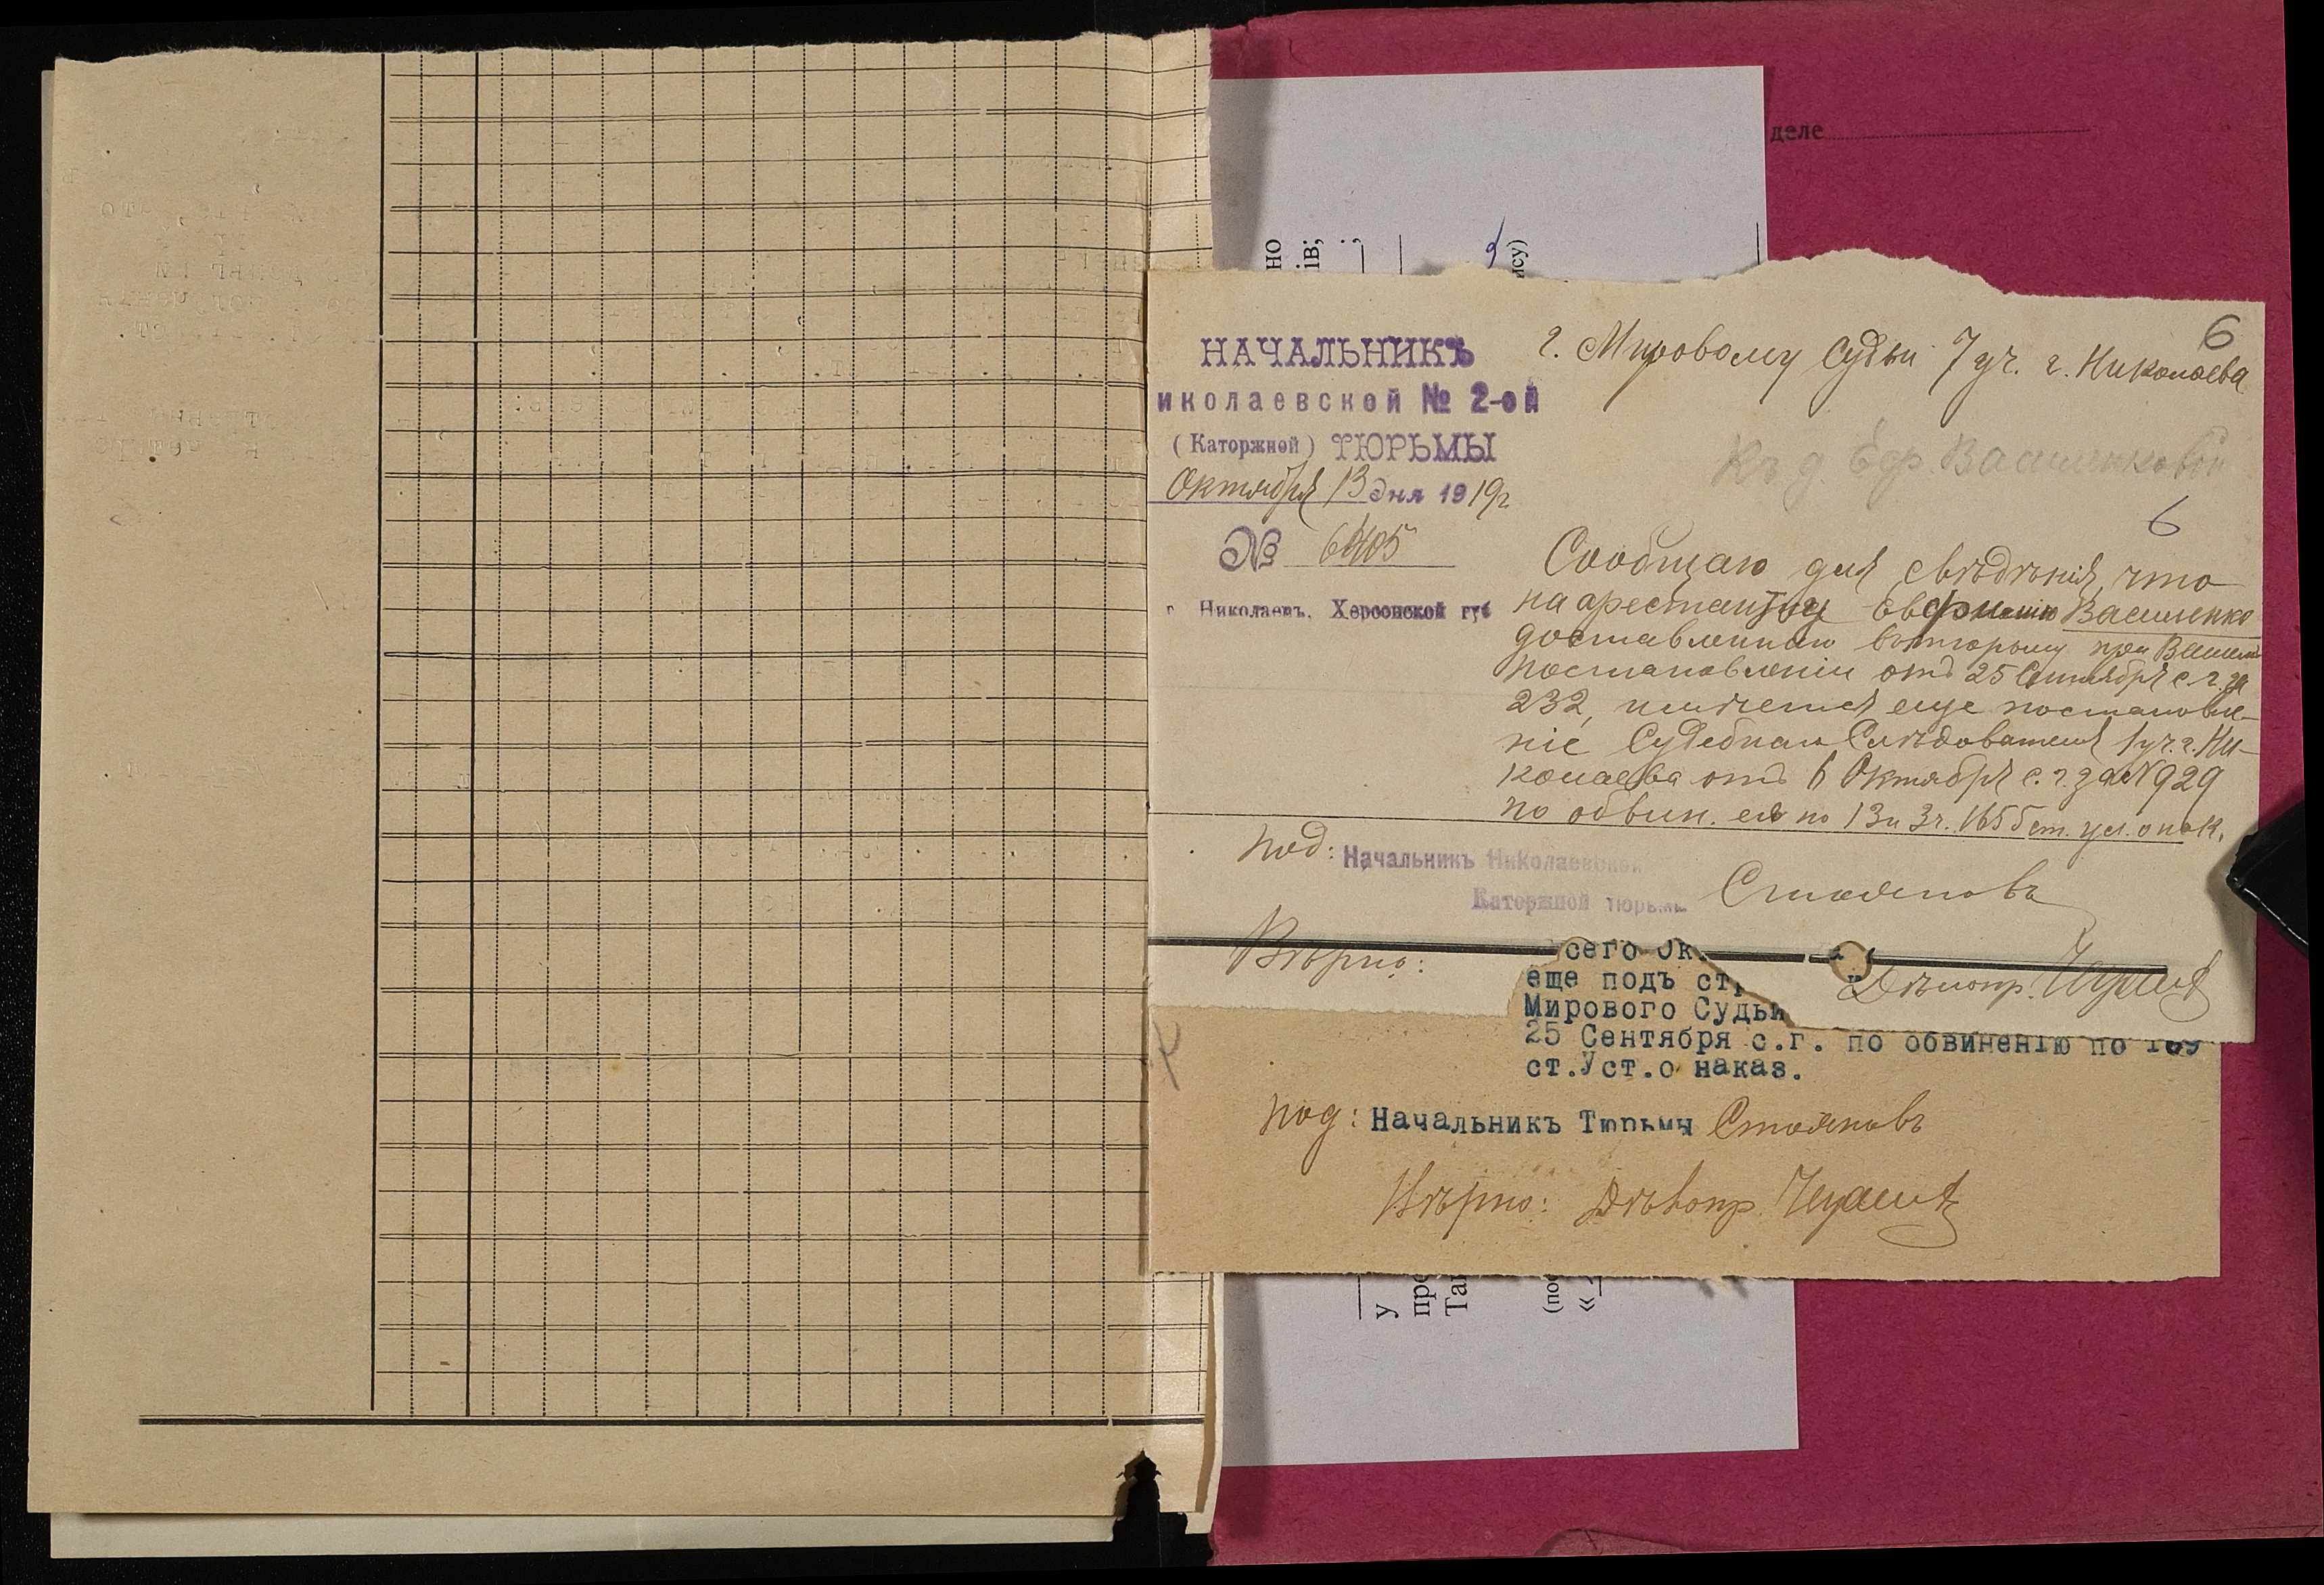 деле
но
ів;
ису)
6
НАЧАЛЬНИКЪ
иколаевской № 2-ой
(Каторжной) ТЮРЬМЫ
Октября 13 дня 1919г.
№ 6405
Николаевъ, Херсонской губ
г. Мировому Судьи 7 уч. г. Николаева
Къ д. Евр. Василенковой
6
Сообщаю для свѣдѣнія, что
на арестантку Евфимію Василенко
доставленную при Вашемъ
постановленіи отъ 25 Сентября с.г. за
232, имѣется еще постановле-
ніе Судебнаго Слѣдователя 1 уч. г. Ни-
колаева отъ 6 Октября с.г. за № 929
по обвин. ея по 13 и 3 ч. 1655 ст. ул. о нак.
под: Начальникъ Николаевской
Каторжной тюрьмы Стояновъ
Вѣрно: Дѣлопр.
сего Ок
еще подъ стр
Мирового Судьи
25 Сентября с.г. по обвиненію по 169
ст.Уст.о наказ.
под: Начальникъ Тюрьмы Стояновъ
Вѣрно: Дѣлопр.
у
про
Так
(пос
«